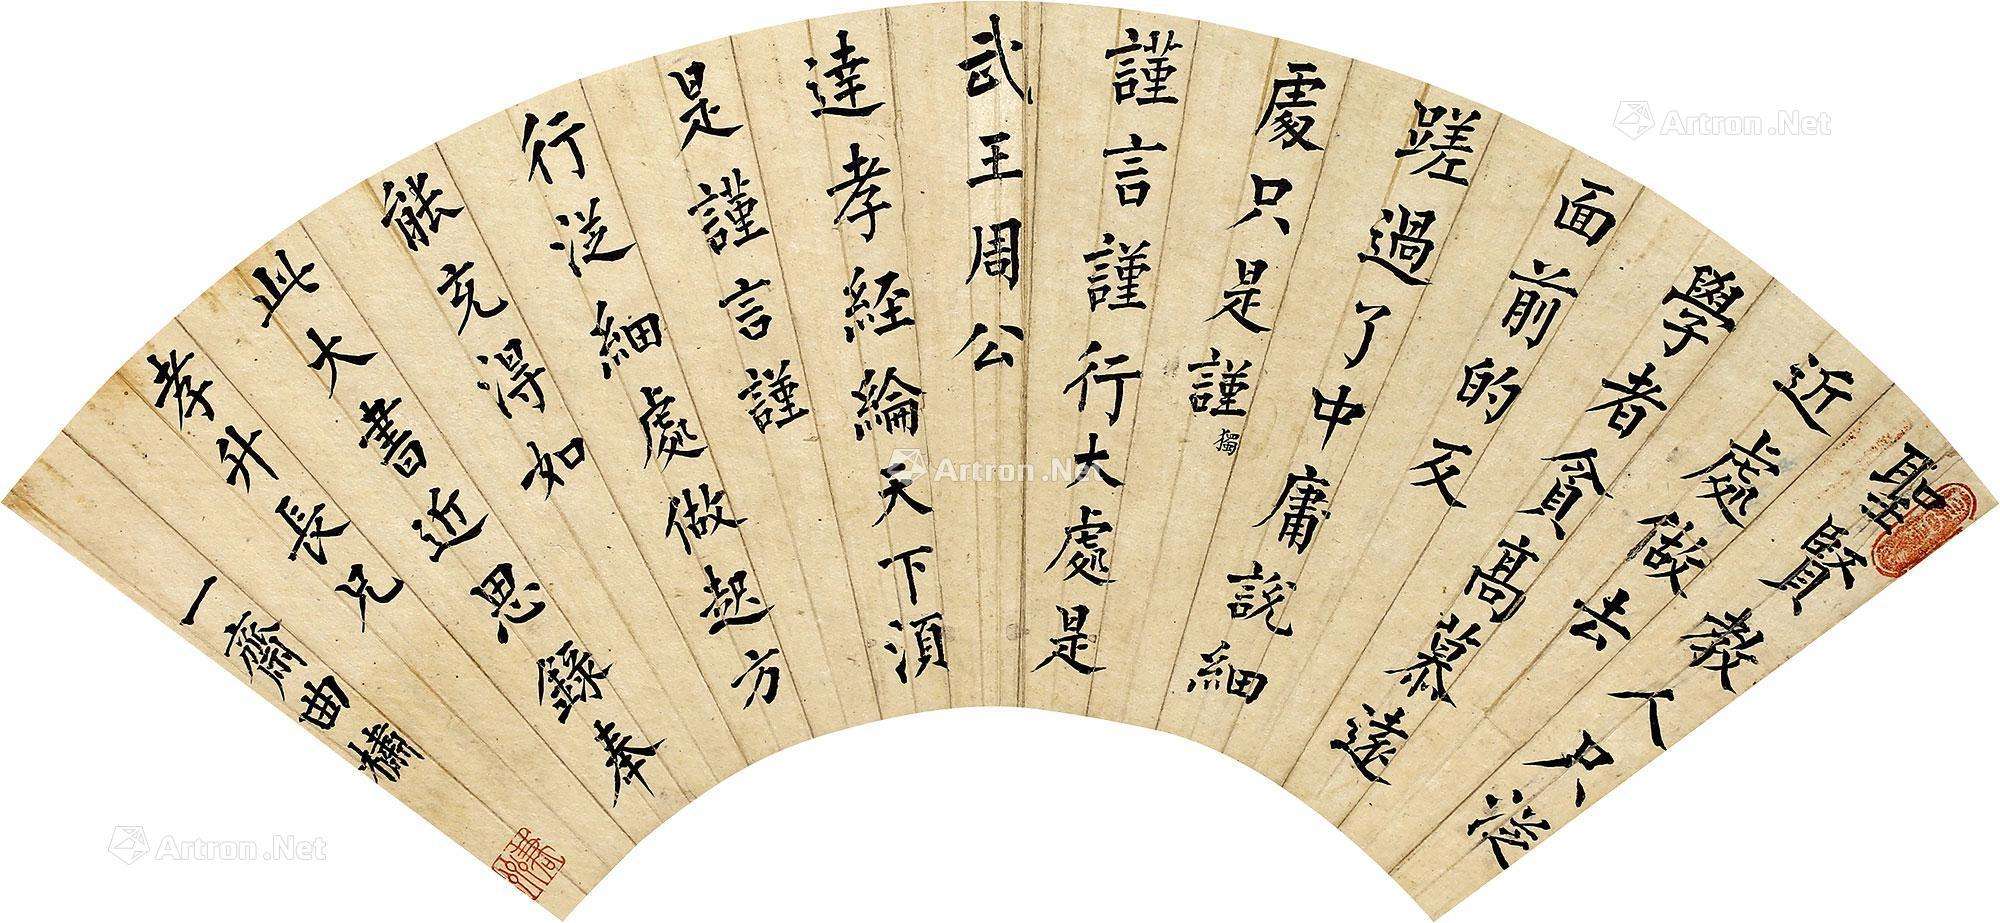 聖賢教人只從
近處做去
學者貪高慕遠
面前的反
蹉過了中庸說細
處只是謹獨
謹言謹行大處是
武王周公
達孝經綸天下須
是謹言謹
行從細處做起方
能充得如
此大書近思錄奉
孝升長兄
一齋曲橚
Artron.Net
Artron.Net
Artron.Net